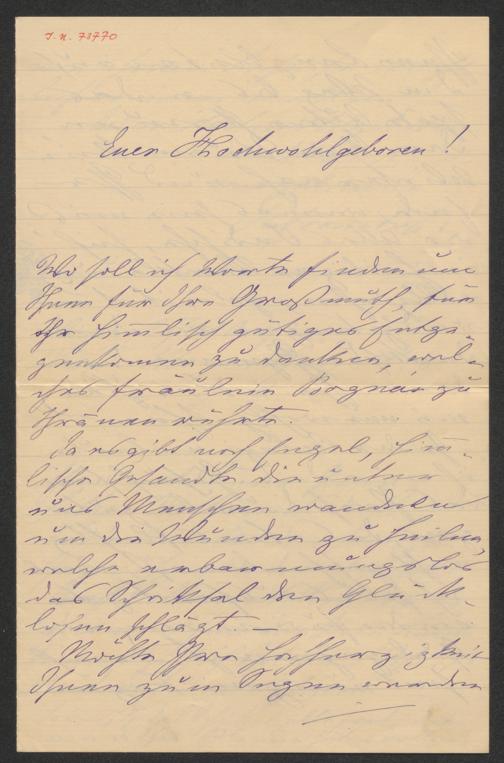 J. N. 78770
Euer Hochwohlgeboren!
Wo soll ich Worte finden um
Ihnen für Ihre Großmuth, für
Ihr himmlisch gütiges Entge-
genkommen zu danken, wel-
ches Fräulein Bognár zu
Thränen rührte.
Ja es gibt noch Engel, him-
lische Gesandte die unter
uns Menschen wandeln
um die Wunden zu heilen,
welche erbarmungslos
das Schicksal den Glück-
losen schlägt. —
Möchte Ihre Hochherzigkeit
Ihnen zum Segen werden